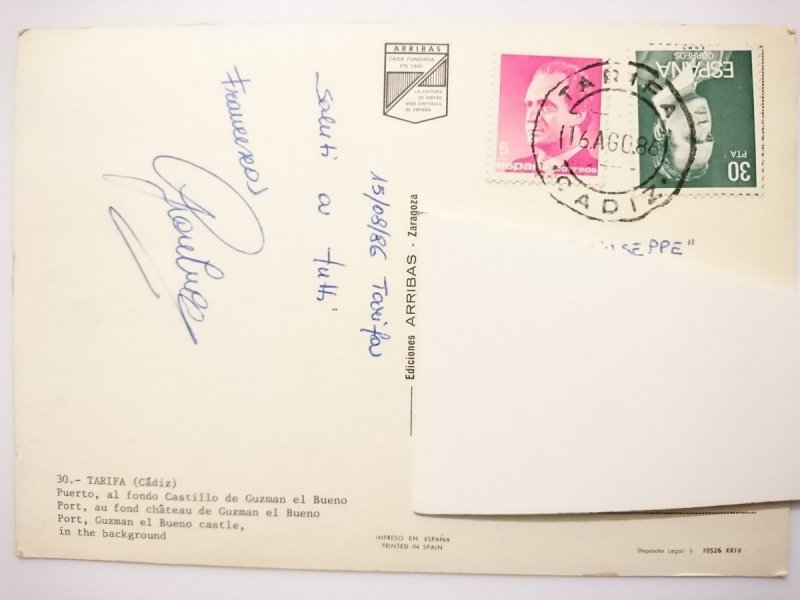 ARRIBAS
CASA FUNDADA
EN 1905
LA EDITORA
DE VISTAS
MAS ANTIGUA
DE ESPAÑA
5
españa correos
ESPAÑA
CORREOS
30
PTA
TARIFA
16 AGO. 86
CADIZ
15/08/86 Tarifa
Saluti a tutti
Francesco
Ediciones ARRIBAS - Zaragoza
30.- TARIFA (Cádiz)
Puerto, al fondo Castillo de Guzman el Bueno
Port, au fond château de Guzman el Bueno
Port, Guzman el Bueno castle,
in the background
IMPRESO EN ESPAÑA
PRINTED IN SPAIN
Depósito Legal: 10526 XXIV